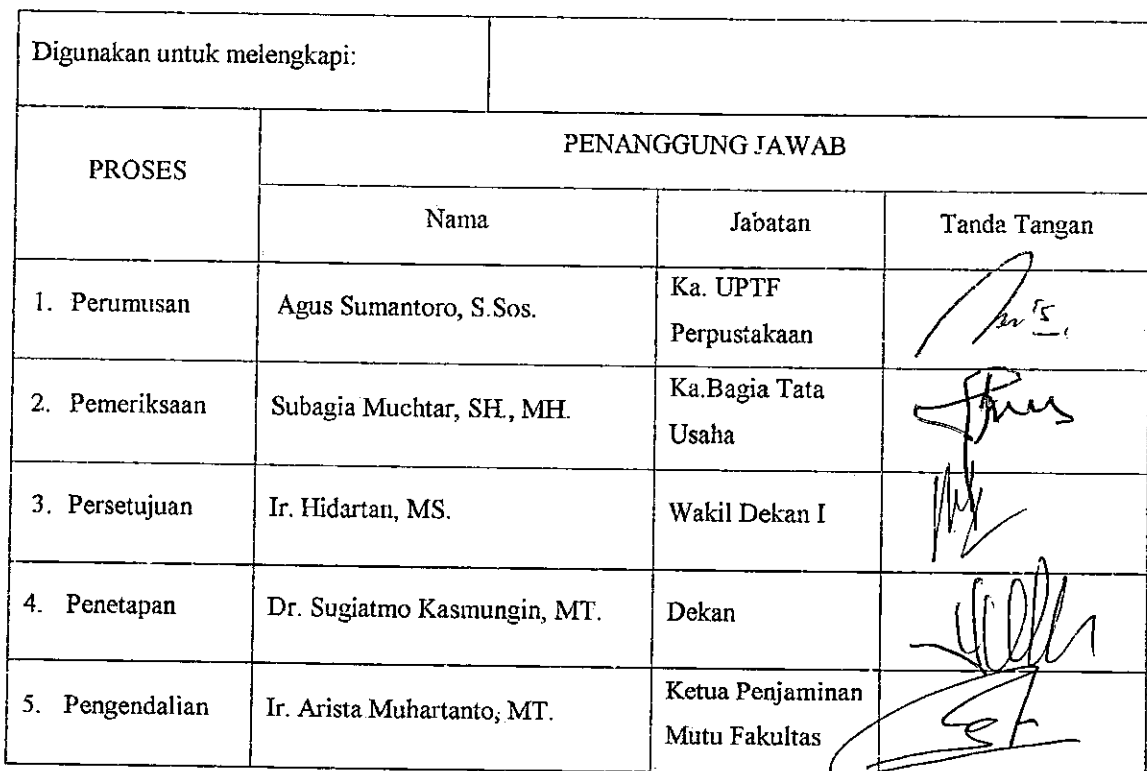 Digunakan untuk melengkapi:
PROSES
PENANGGUNG JAWAB
Nama
Jabatan
Tanda Tangan
1. Perumusan
Agus Sumantoro, S.Sos.
Ka. UPTF
Perpustakaan
2. Pemeriksaan
Subagia Muchtar, SH., MH.
Ka.Bagia Tata
Usaha
3. Persetujuan
Ir. Hidartan, MS.
Wakil Dekan I
4. Penetapan
Dr. Sugiatmo Kasmungin, MT.
Dekan
5. Pengendalian
Ir. Arista Muhartanto, MT.
Ketua Penjaminan
Mutu Fakultas